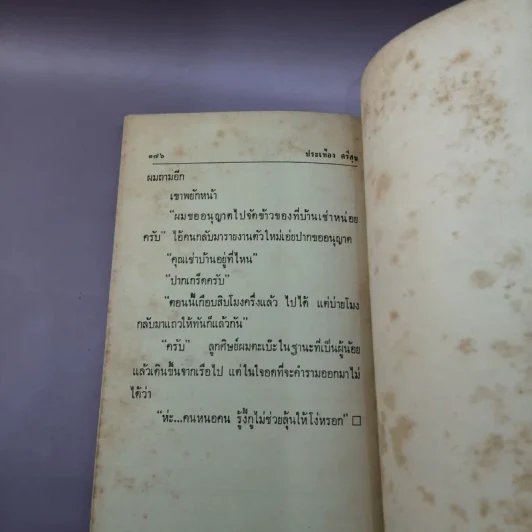 ๑๗๖ ประเทือง ศรีสุข
ผมถามอีก
เขาพยักหน้า
“ผมขออนุญาตไปจัดข้าวของที่บ้านเช่าหน่อย
ครับ” ไอ้คนกลับมารายงานตัวใหม่เอ่ยปากขออนุญาต
“คุณเช่าบ้านอยู่ที่ไหน”
“ปากเกร็ดครับ”
“ตอนนี้เกือบสิบโมงครึ่งแล้ว ไปได้ แต่บ่ายโมง
กลับมาแถวให้ทันก็แล้วกัน”
“ครับ” ลูกศิษย์ผมตะเบ๊ะในฐานะที่เป็นผู้น้อย
แล้วเดินขึ้นจากเรือไป แต่ในใจอดที่จะคำรามออกมาไม่
ได้ว่า
“ห่ะ...คนหนอคน รู้งี้กูไม่ช่วยลุ้นให้โง่หรอก” □